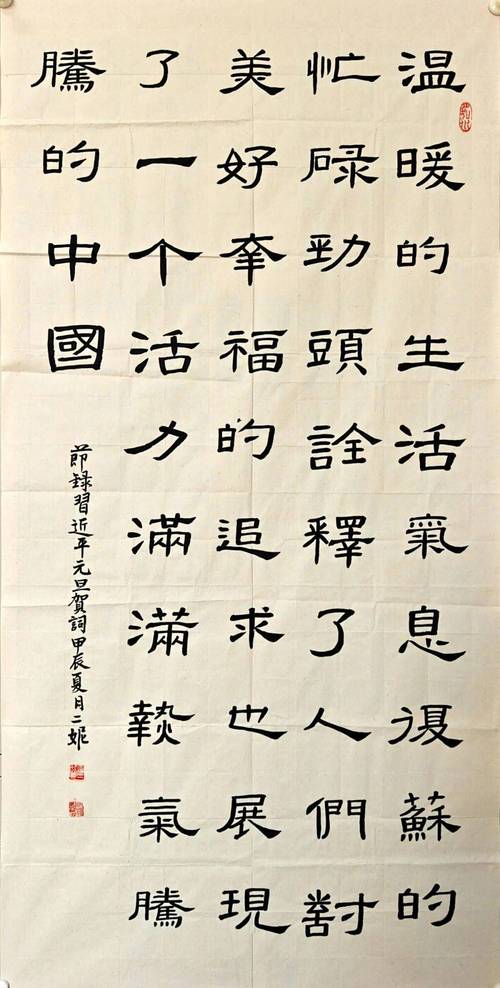 温暖的生活氣息復蘇的
忙碌勁頭詮釋了人們對
美好幸福的追求也展現
了一个活力滿滿熱氣騰
騰的中國
節録習近平元旦賀詞甲辰夏月二妮